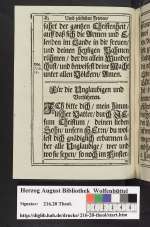 Und jüdischen Frauen
fahrt der gantzen Christenheit /
auff daß sich die Armen und E-
lenden im Lande in dir freuen/
und deinen heyligen Nahmen
rühmen / der du allein Wunder
thust und beweisest deine Macht
unter allen Völckern/ Amen.
Für die Unglaubigen und
Verführten.
Ich bitte dich / mein himm-
lischer Vatter/ durch JE-
sum Christum / deinen lieben
Sohn/ unsern HErrn/ du wol-
lest dich gnädiglich erbarmen ü-
ber alle Unglaubige/ wer und
wo sie seyen/ so noch im Finster-
Herzog August Bibliothek Wolfenbüttel
Signatur: 216.20 Theol.
http://diglib.hab.de/drucke/216-20-theol/start.htm